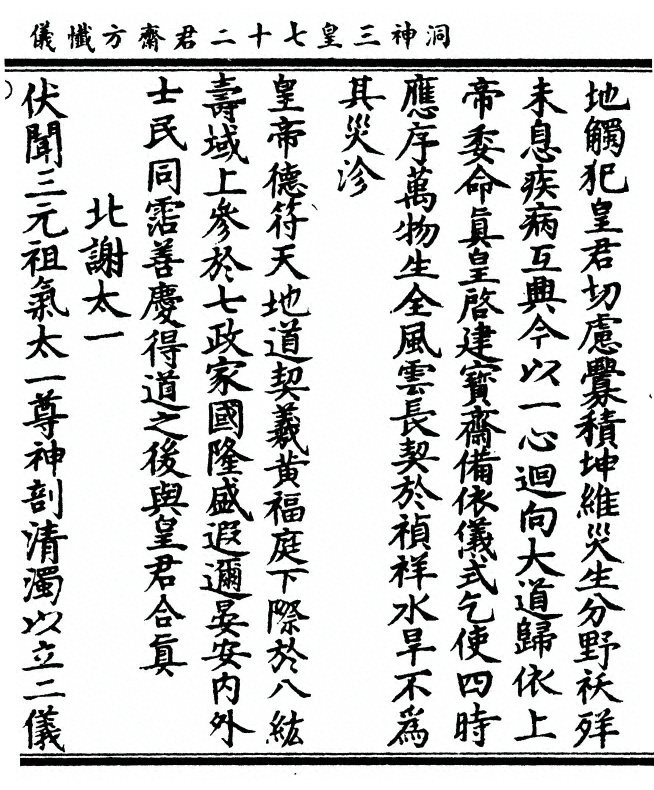 洞神三皇七十二君齋方懺儀
地觸犯皇君切慮釁積坤維災生分野祅殃
未息疾病互興今以一心迴向大道歸依上
帝委命眞皇啓建寶齋備依儀式乞使四時
應序萬物生全風雲長契於禎祥水旱不爲
其災沴
皇帝德符天地道契羲黄福庭下際於八紘
壽域上參於七政家國隆盛遐邇晏安内外
士民同霑善慶得道之後與皇君合眞
北謝太一
伏聞三元祖氣太一尊神剖清濁以立二儀